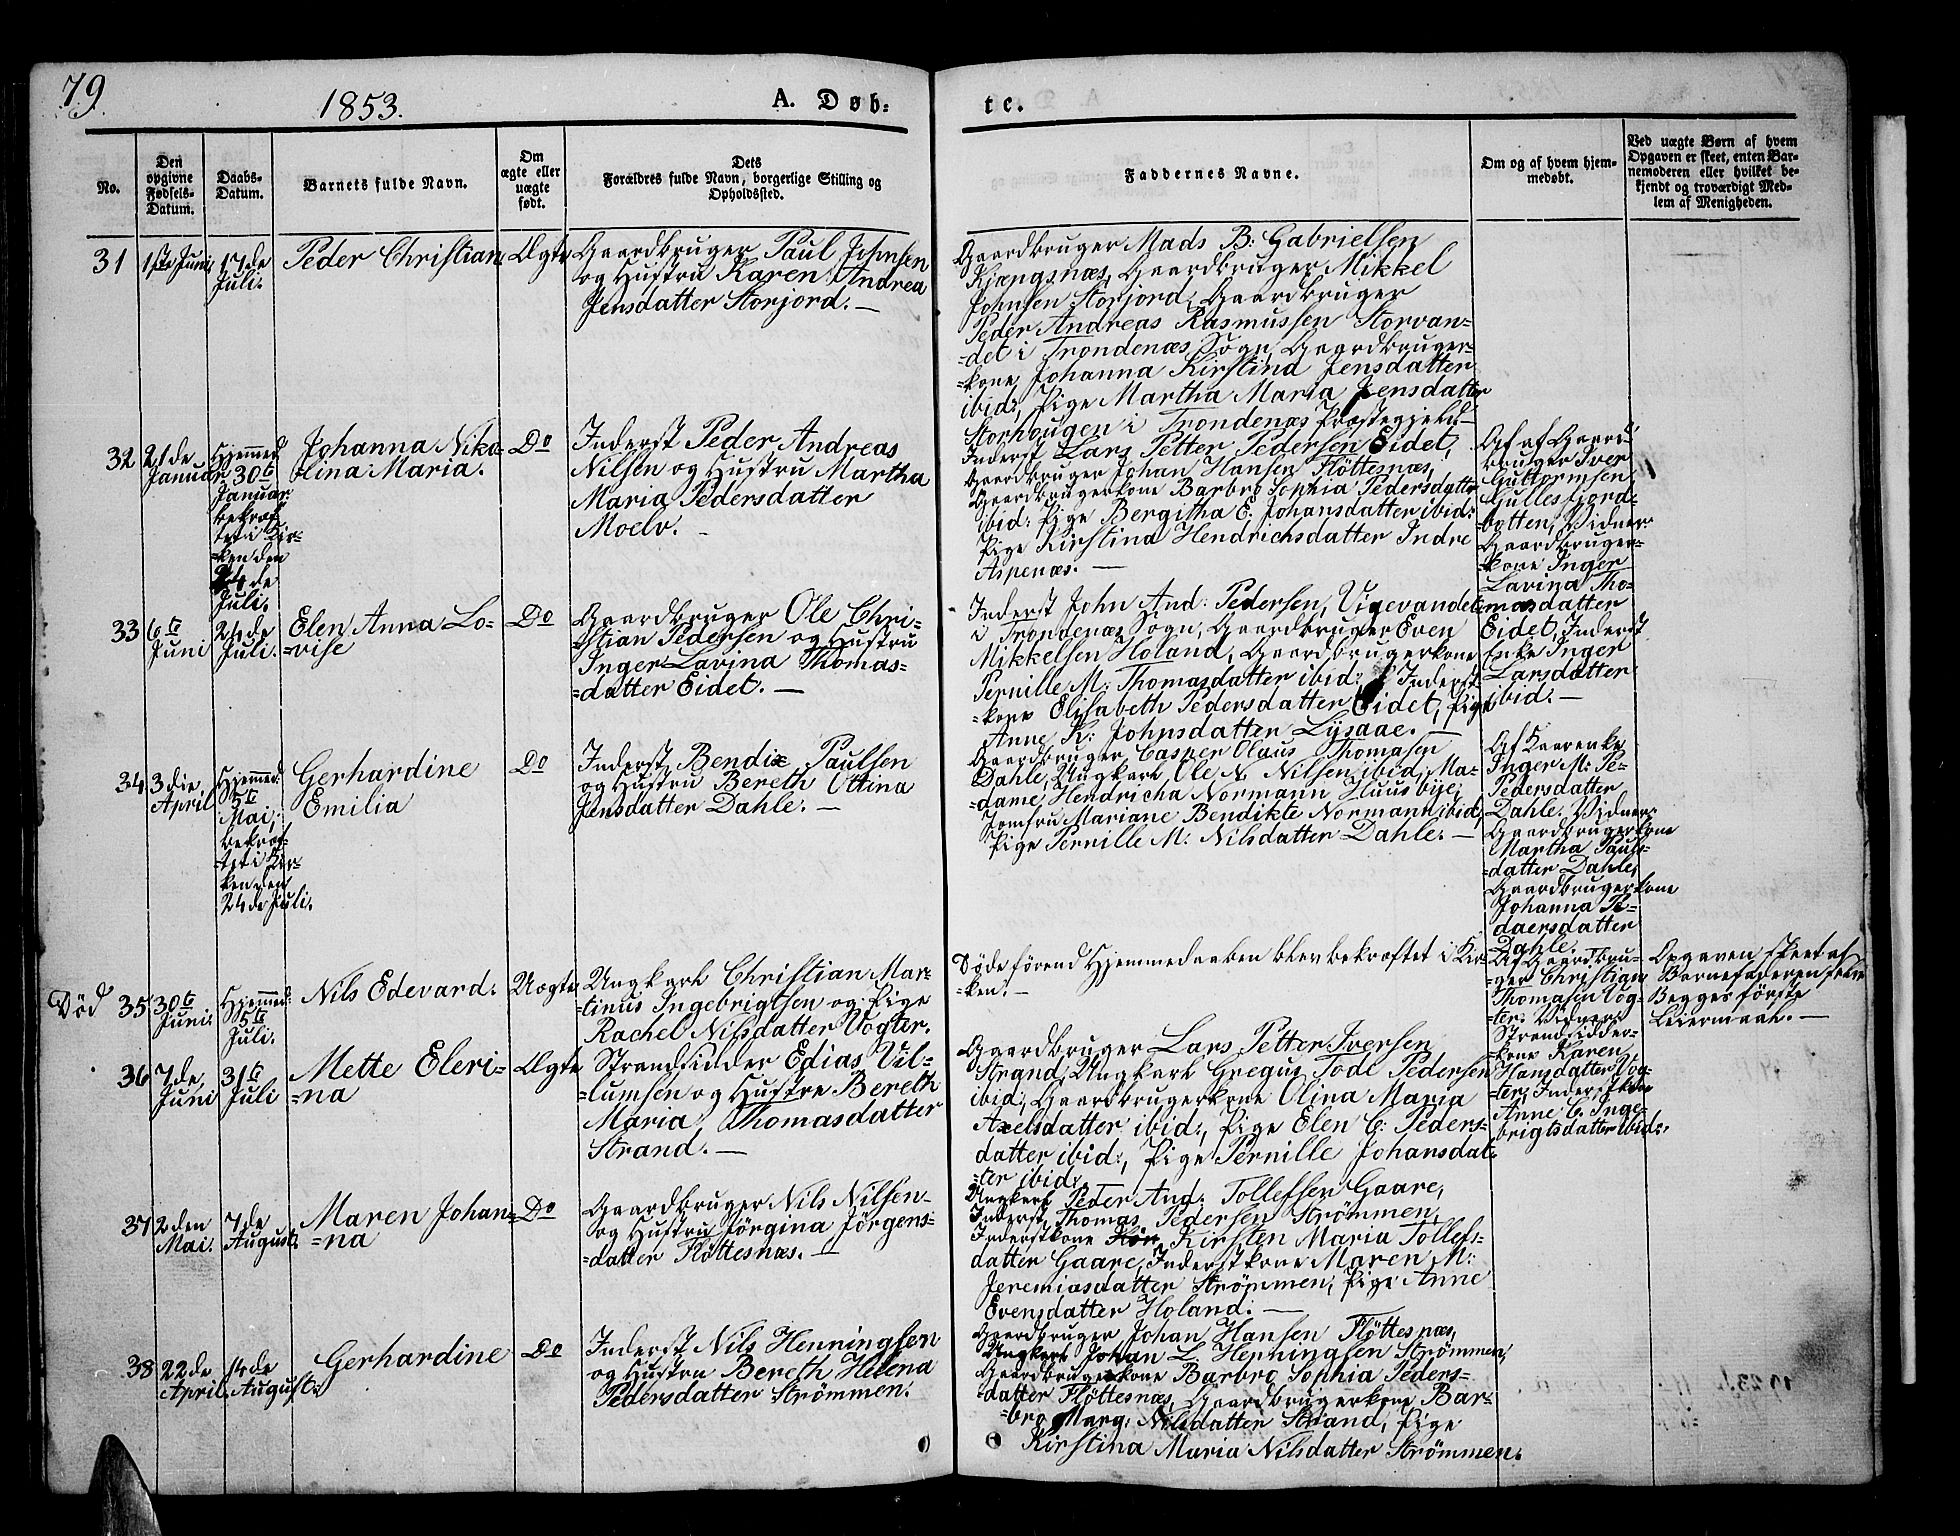 79.
1853.
A. Døb=
te.
No.
Den opgivne Fødsels-Datum.
Daabs-Datum.
Barnets fulde Navn.
Om ægte eller uægte født.
Dets
Forældres fulde Navn, borgerlige Stilling og
Opholdssted.
Faddernes Navne.
Om og af hvem hjem-
medøbt.
Ved uægte Børn af hvem
Opgaven er skeet, enten Bar-
nemoderen eller hvilket be-
kjendt og troværdigt Med-
lem af Menigheden.
31
1ste Juni
17de
Juli.
Peder Christian
Ægte
Gaardbruger Paul Johnsen
og Hustru Karen Andrea
Jensdatter Storjord. —
Gaardbruger Mads B: Gabrielsen
Kjængsnæs, Gaardbruger Mikkel
Johnsen Storjord, Gaardbruger
Peder Andreas Rasmussen Storvan=
=det i Trondenæs Sogn, Gaardbruger=
=kone Johanna Kirstina Jensdatter
ibid:, Pige Martha Maria Jensdatter
Storhougen i Trondenæs Præstegjeld
32
21de
Januar
Hjemmed.
30te
Januar
bekræf=
tet i Kir=
=ken den
24de
Juli.
Johanna Niko=
=lina Maria.
Do
Inderst Peder Andreas
Nilsen og Hustru Martha
Maria Pedersdatter
Moelv. —
Inderst Lars Petter Pedersen Eidet,
Gaardbruger Johan Hansen Fløttesnæs,
Gaardbrugerkone Barbro Sophia Pedersdatter
ibid: Pige Bergitha E. Johansdatter ibid:
Pige Kirstina Hendrichsdatter Indre
Aspenæs. —
Af Gaard
bruger Iver
Guttormsen
Gullesfjord=
=botten, Vidner
Gaardbruger=
=kone Inger
Lavina Tho=
masdatter
Eidet, Inderst
Enke Inger
Larsdatter
ibid. —
33
6te
Juni
24de
Juli.
Elen Anna Lo=
=vise
Do
Gaardbruger Ole Chri=
=stian Pedersen og Hustru
Inger Lavina Thomas=
=datter Eidet. —
Inderst John And: Pedersen, Vigevandet
i Trondenæs Sogn, Gaardbruger Even
Mikkelsen Holand, Gaardbrugerkone
Pernille M: Thomasdatter ibid:, Inderst
=kone Elisabeth Pedersdatter Eidet, Pige
Anne K: Johnsdatter Lysaae. —
34
3die
April
Hjemmed:
5te
Mai,
bekræf=
=tet i Kir=
=ken den
24de Juli.
Gerhardine
Emilia
Do
Inderst Bendix Paulsen
og Hustru Bereth Ottina
Jensdatter Dahle. —
Gaardbruger Casper Olaus Thomasen
Dahle, Ungkarl Ole N. Nilsen ibid, Ma=
=dame Hendricha Normann Huusbye,
Jomfru Mariane Bendikte Normann ibid,
Pige Pernille M. Nilsdatter Dahle. —
Af
Inger M: Pe=
Pedersdatter
Dahle. Vidner:
Gaardbrugerkone
Martha Pauls=
=datter Dahle,
Gaardbrugerkone
Johanna Pe=
daersdatter
Dahle.
Død
35
30te
Juni
Hjemmed:
5te
Juli.
Nils Edevard.
Uægte
Ungkarl Christian Mar=
=tinus Ingebrigtsen og Pige
Rachel Nilsdatter Vogter.
Døde førend Hjemmedaaben blev bekræftet i Kir=
=ken. —
Af Gaardbru=
ger Christian
Thomasen Vog=
=ter. Vidner:
Strandsidder=
=kone Karen
Hansdatter Vog=
=ter, Inderstkone
Anne C. Inge=
brigtsdatter ibid:
Opgaven skeet af
Barnefaderen selv
Begges første
Leiermaal. —
36
7de
Juni
31te
Juli
Mette Eleri=
=na
Ægte
Strandsidder Edias Vil=
=lumsen og Hustru Bereth
Maria Thomasdatter
Strand. —
Gaardbruger Lars Petter Iversen
Strand, Ungkarl Gregus Tode Pedersen
ibid:, Gaardbrugerkone Olina Maria
Axelsdatter ibid:, Pige Elen C: Peders=
datter ibid:, Pige Pernille Johansdat=
=ter ibid:.
37
2den
Mai.
7de
August.
Maren Johan=
=na
Do
Gaardbruger Nils Nilsen
og Hustru Jørgina Jørgens=
=datter Fløttesnæs. —
Ungkarl Peder And: Tollefsen Gaare,
Inderst Thomas Pedersen Strømmen,
Inderstkone Kirsten Maria Tollefs=
datter Gaare, Inderstkone Maren M:
Jeremiasdatter Strømmen, Pige Anne
Evensdatter Holand. —
38
22de
April.
14de
August.
Gerhardine
Do
Inderst Nils Henningsen
og Hustru Bereth Helena
Pedersdatter Strømmen.
Gaardbruger Johan Hansen Fløttesnæs,
Ungkarl Johan L Henningsen Strømmen,
Gaardbrugerkone Barbro Sophia Peders=
=datter Fløttesnæs, Gaardbrugerkone Bar=
=bro Marg: Nilsdatter Strand, Pige
Kirstina Maria Nilsdatter Strømmen.